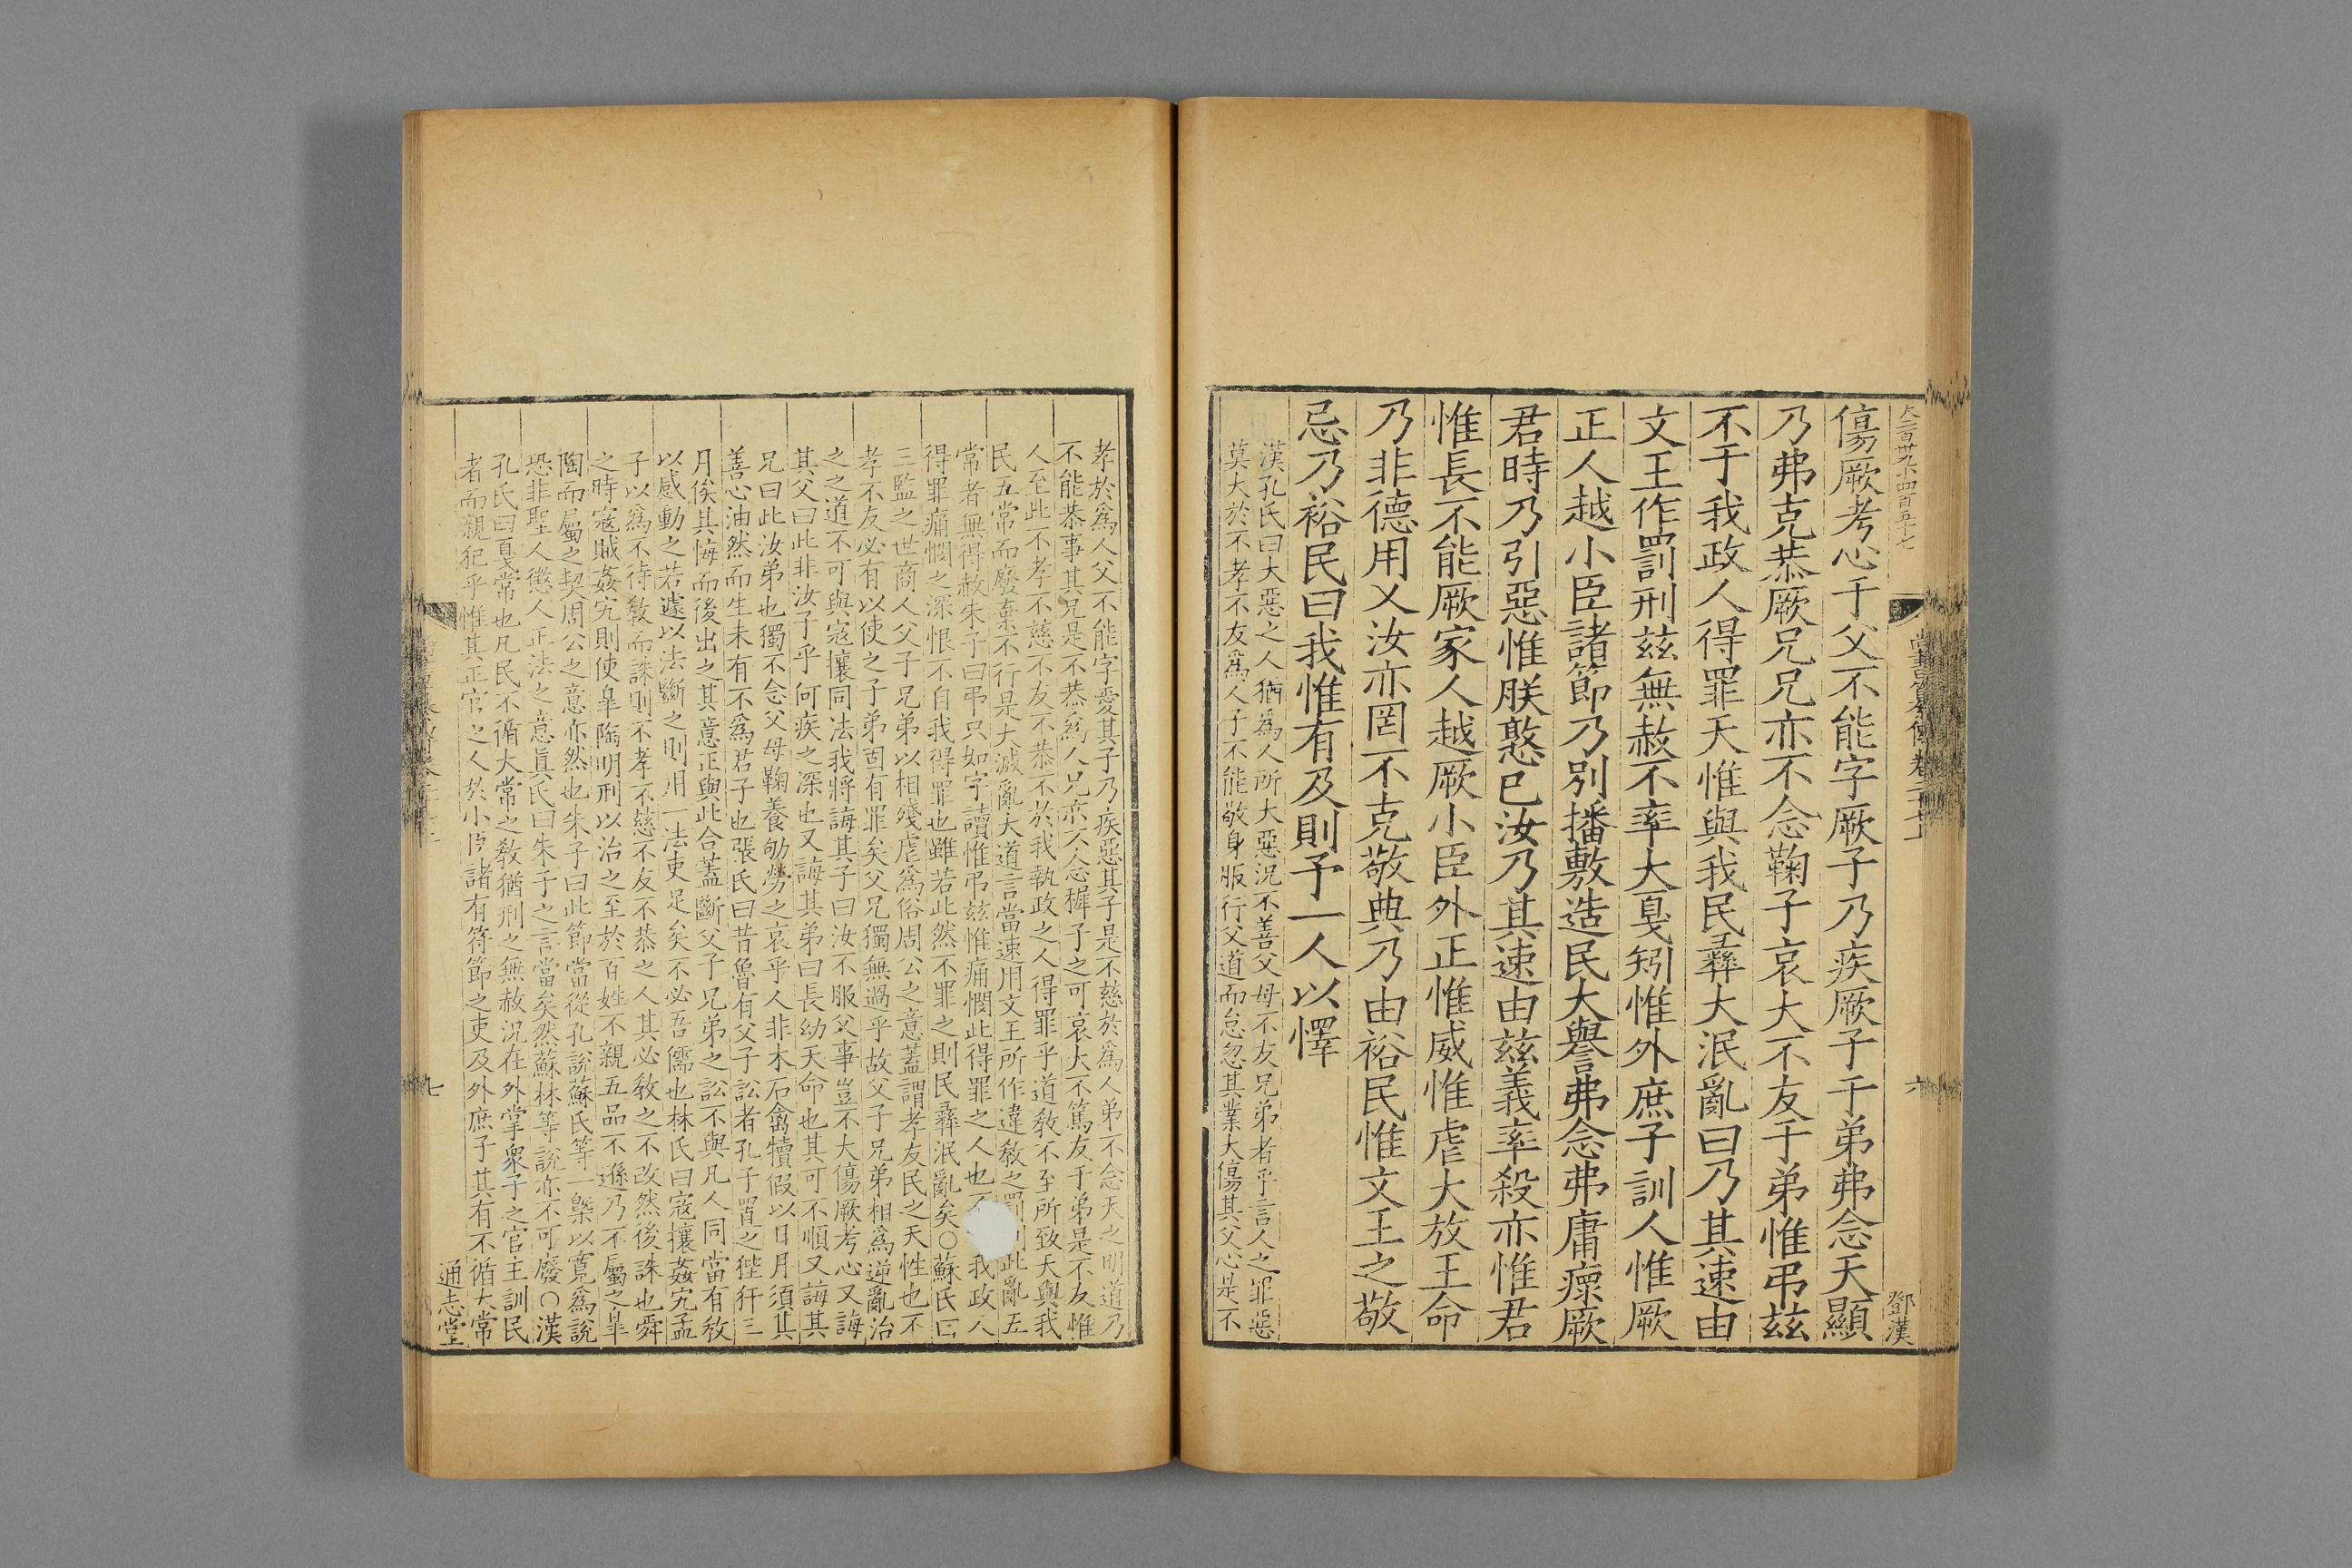 大三百廿九小四百五十七
鄧漢
傷厥考心于父不能字厥子乃疾厥子于弟弗念天顯
乃弗克恭厥兄兄亦不念鞠子哀大不友于弟惟弔兹
不于我政人得罪天惟與我民彝大泯亂曰乃其速由
文王作罰刑兹無赦不率大戛矧惟外庶子訓人惟厥
正人越小臣諸節乃別播敷造民大譽弗念弗庸瘝厥
君時乃引惡惟朕憝已汝乃其速由兹義率殺亦惟君
惟長不能厥家人越厥小臣外正惟威惟虐大放王命
乃非德用乂汝亦罔不克敬典乃由裕民惟文王之敬
忌乃裕民曰我惟有及則予一人以懌
漢孔氏曰大惡之人猶爲人所大惡況不善父母不友兄弟者乎言人之罪惡
莫大於不孝不友爲人子不能敬身服行父道而怠忽其業大傷其父心是不
孝於爲人父不能字愛其子乃疾惡其子是不慈於爲人弟不念天之明道乃
不能恭事其兄是不恭爲人兄亦不念稺子之可哀大不篤友于弟是不友惟
人至此不孝不慈不友不恭不於我執政之人得罪乎道教不至所致天與我
民五常而廢棄不行是大滅亂天道言當速用文王所作違教之罰刑此亂五
常者無得赦朱子曰弔只如字讀惟弔兹惟痛憫此得罪之人也不我政人
得罪痛憫之深恨不自我得罪也雖若此然不罪之則民彝泯亂矣○蘇氏曰
三監之世商人父子兄弟以相殘虐爲俗周公之意蓋謂孝友民之天性也不
孝不友必有以使之子弟固有罪矣父兄獨無過乎故父子兄弟相爲逆亂治
之之道不可與寇攘同法我將誨其子曰汝不服父事豈不大傷厥考心又誨
其父曰此非汝子乎何疾之深也又誨其弟曰長幼天命也其可不順又誨其
兄曰此汝弟也獨不念父母鞠養劬勞之哀乎人非木石禽犢假以日月須其
善心油然而生未有不爲君子也張氏曰昔魯有父子訟者孔子置之狴犴三
月俟其悔而後出之其意正與此合蓋斷父子兄弟之訟不與凡人同當有教
以感動之若遽以法斷之則用一法吏足矣不必吾儒也林氏曰寇攘姦宄孟
子以爲不待教而誅則不孝不慈不友不恭之人其必教之不改然後誅也舜
之時寇賊姦宄則使皐陶明刑以治之至於百姓不親五品不遜乃不屬之皐
陶而屬之契周公之意亦然也朱子曰此節當從孔說蘇氏等一槩以寬爲說
恐非聖人懲人正法之意眞氏曰朱子之言當矣然蘇林等說亦不可廢○漢
孔氏曰戛常也凡民不循大常之教猶刑之無赦況在外掌衆子之官主訓民
者而親犯乎惟其正官之人於小臣諸有符節之吏及外庶子其有不循大常
通志堂